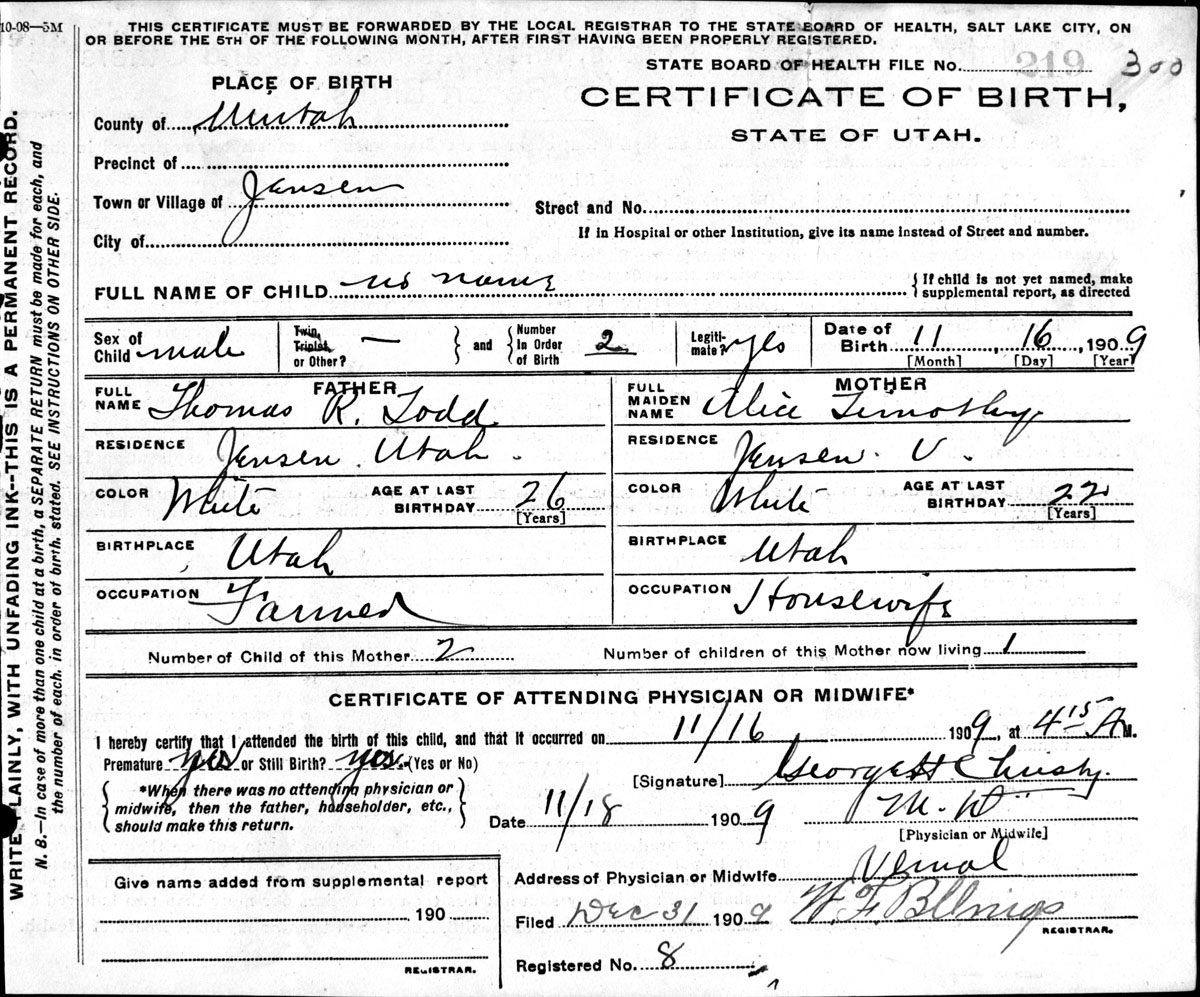 10-08—5M
THIS CERTIFICATE MUST BE FORWARDED BY THE LOCAL REGISTRAR TO THE STATE BOARD OF HEALTH, SALT LAKE CITY, ON
OR BEFORE THE 5TH OF THE FOLLOWING MONTH, AFTER FIRST HAVING BEEN PROPERLY REGISTERED.
STATE BOARD OF HEALTH FILE No. 219 300
PLACE OF BIRTH
CERTIFICATE OF BIRTH,
STATE OF UTAH.
County of Uintah
Precinct of
Town or Village of Jensen
Street and No.
City of
If in Hospital or other Institution, give its name instead of Street and number.
FULL NAME OF CHILD no name {If child is not yet named, make
supplemental report, as directed
Sex of Child male
Twin, Triplet, or Other? — } and { Number In Order of Birth 2
Legiti-mate? yes
Date of Birth 11, 16, 1909
[Month] [Day] [Year]
FATHER
FULL NAME Thomas R. Todd
MOTHER
FULL MAIDEN NAME Alice Timothy
RESIDENCE Jensen Utah.
RESIDENCE Jensen. U.
COLOR White AGE AT LAST BIRTHDAY 26 [Years]
COLOR White AGE AT LAST BIRTHDAY 22 [Years]
BIRTHPLACE Utah
BIRTHPLACE Utah
OCCUPATION Farmer
OCCUPATION Housewife
Number of Child of this Mother 2 Number of children of this Mother now living 1
CERTIFICATE OF ATTENDING PHYSICIAN OR MIDWIFE*
I hereby certify that I attended the birth of this child, and that it occurred on 11/16 1909, at 4 15 A M.
Premature yes or Still Birth? yes. (Yes or No)
[Signature] George H Christy
M. D
[Physician or Midwife]
{ *When there was no attending physician or
midwife, then the father, householder, etc.,
should make this return. }
Date 11/18 1909
Address of Physician or Midwife Vernal
Filed Dec 31 1909 W F Billings
REGISTRAR.
Registered No. 8
Give name added from supplemental report
190
REGISTRAR.
WRITE PLAINLY, WITH UNFADING INK--THIS IS A PERMANENT RECORD.
N. B.—In case of more than one child at a birth, a SEPARATE RETURN must be made for each, and
the number of each, in order of birth, stated. SEE INSTRUCTIONS ON OTHER SIDE.